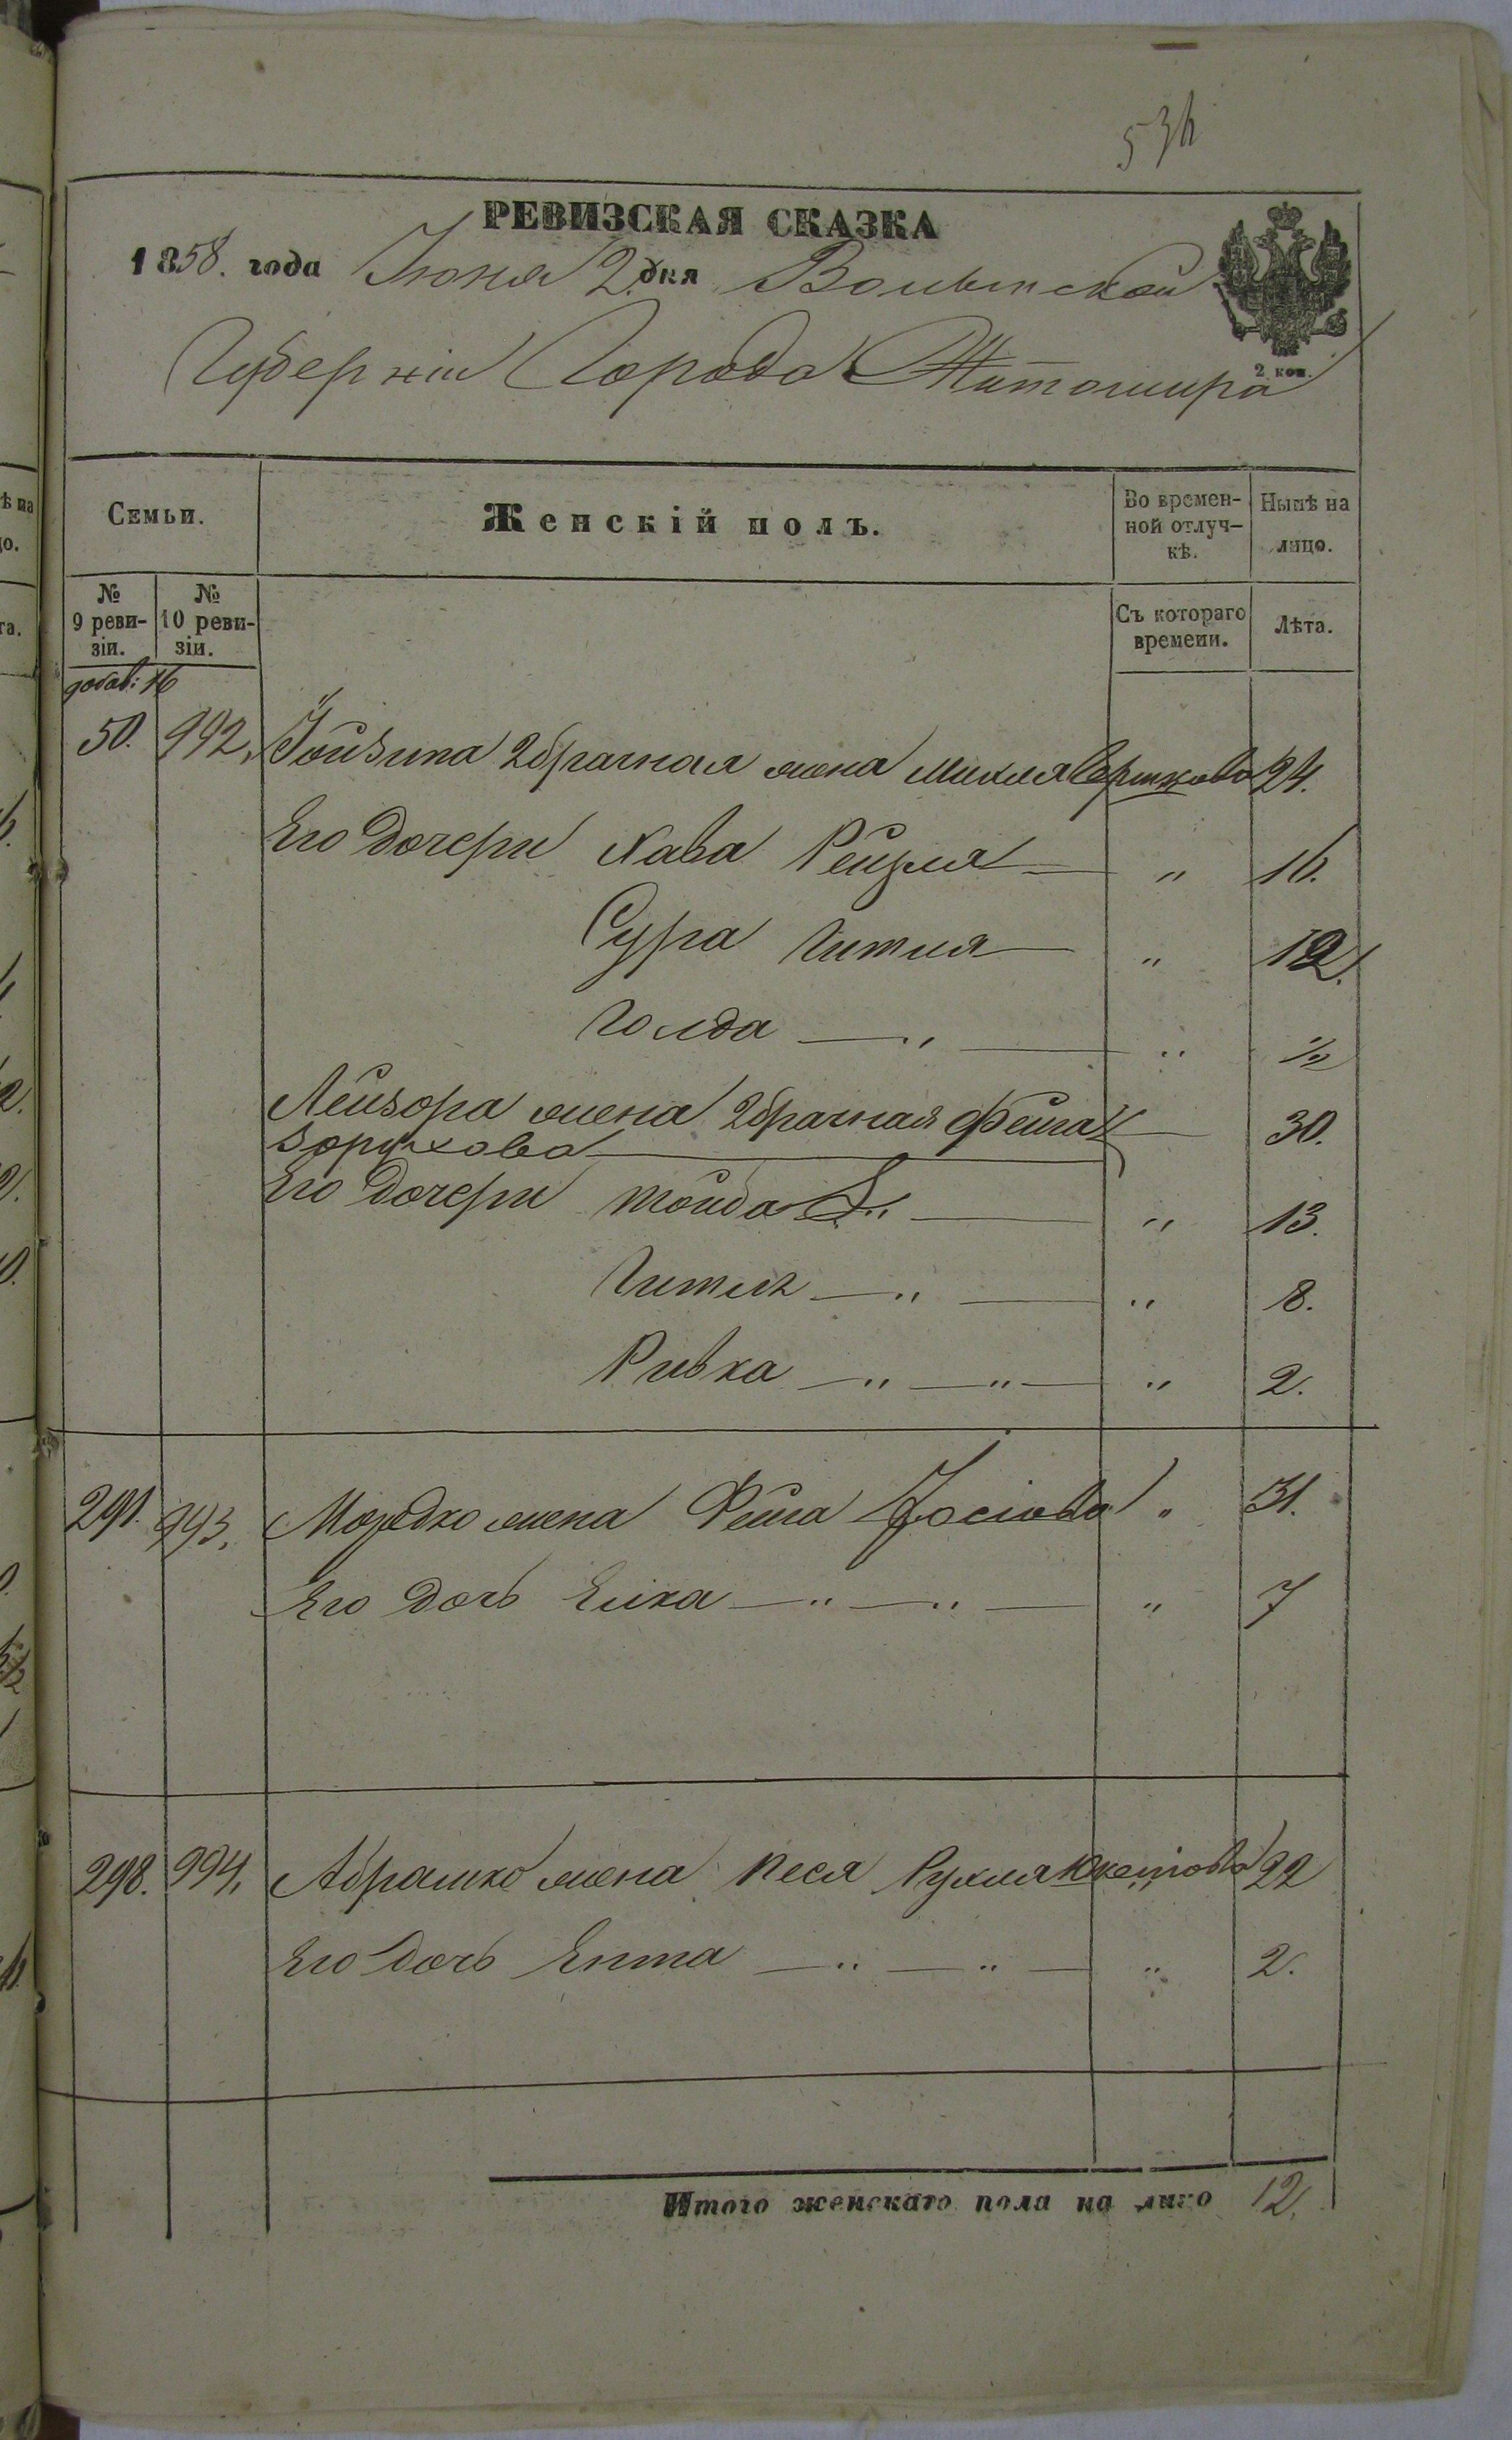 536
РЕВИЗСКАЯ СКАЗКА
1858. года Іюня 2 дня Волынской
Губерніи Города Житомира
2 коп.
Семьи. Женскій полъ. Во временной отлучкѣ. Нынѣ на лицо.
№ 9 ревизіи. № 10 ревизіи. Съ котораго времени. Лѣта.
добав: 16
50. 992. 2брачная жена Михля 24.
Его дочери Хава Рейзля — „ 16.
Сура Гитля — „ 12.
Голда — „ — „ 1/2
Лейзора жена 2брачная Фейга — 30.
Борухова
Его дочери Тойба „ — „ 13.
Гитля — „ — „ 8.
Ривка — „ — „ — „ 2.
291. 993. Мордко жена Фейга Іосіова „ 31.
Его дочь Елка — „ — „ — „ 7
298. 994. Абрамко жена Песя Рухля 22
Его дочь Ента — „ — „ — „ 2.
Итого женскаго пола на лицо 12.